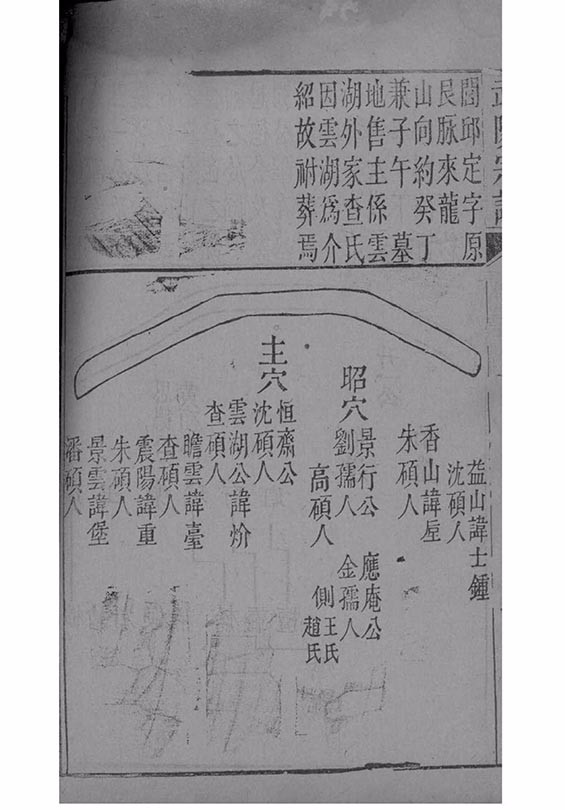 閭邱定字原
艮脉來龍
山向約癸丁
兼子午墓
地售主係雲
湖外家查氏
因雲湖爲介
紹故祔葬焉
益山諱士鍾
沈碩人
香山諱垕
朱碩人
昭穴
景行公
劉孺人
高碩人
應庵公
金孺人
側王氏
趙氏
主穴
恒齋公
沈碩人
雲湖公諱炌
查碩人
瞻雲諱臺
查碩人
震陽諱重
朱碩人
景雲諱堡
潘碩人